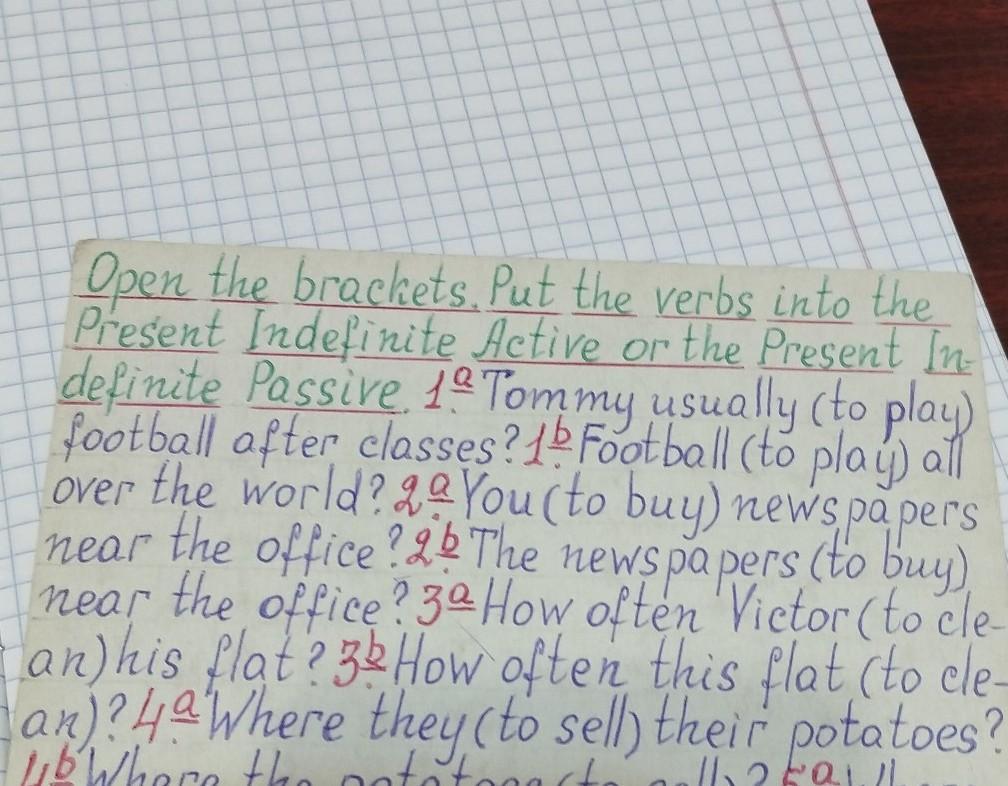 Open the brackets. Put the verbs into the
Present Indefinite Active or the Present In-
definite Passive. 1a. Tommy usually (to play)
football after classes? 1b. Football (to play) all
over the world? 2a. You (to buy) newspapers
near the office? 2b. The newspapers (to buy)
near the office? 3a. How often Victor (to cle-
an) his flat? 3b. How often this flat (to cle-
an)? 4a. Where they (to sell) their potatoes?
4b. Where the potatoes (to sell)? 5a.